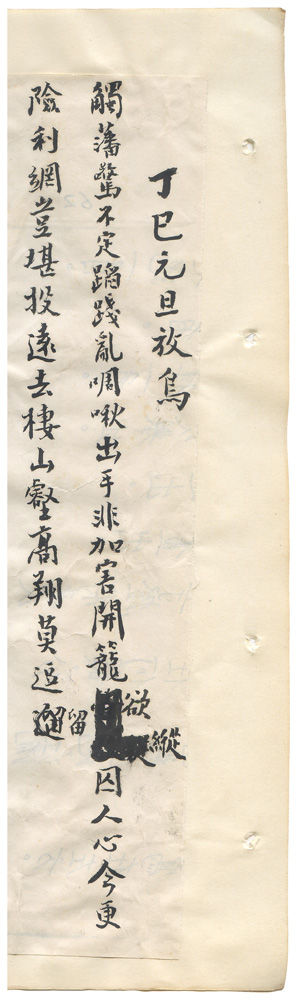 丁巳元旦放鳥
觸藩驚不定蹈踐亂啁啾出手非加害開籠欲縱囚人心今更
險利網豈堪投遠去棲山壑高翔莫逗遛留